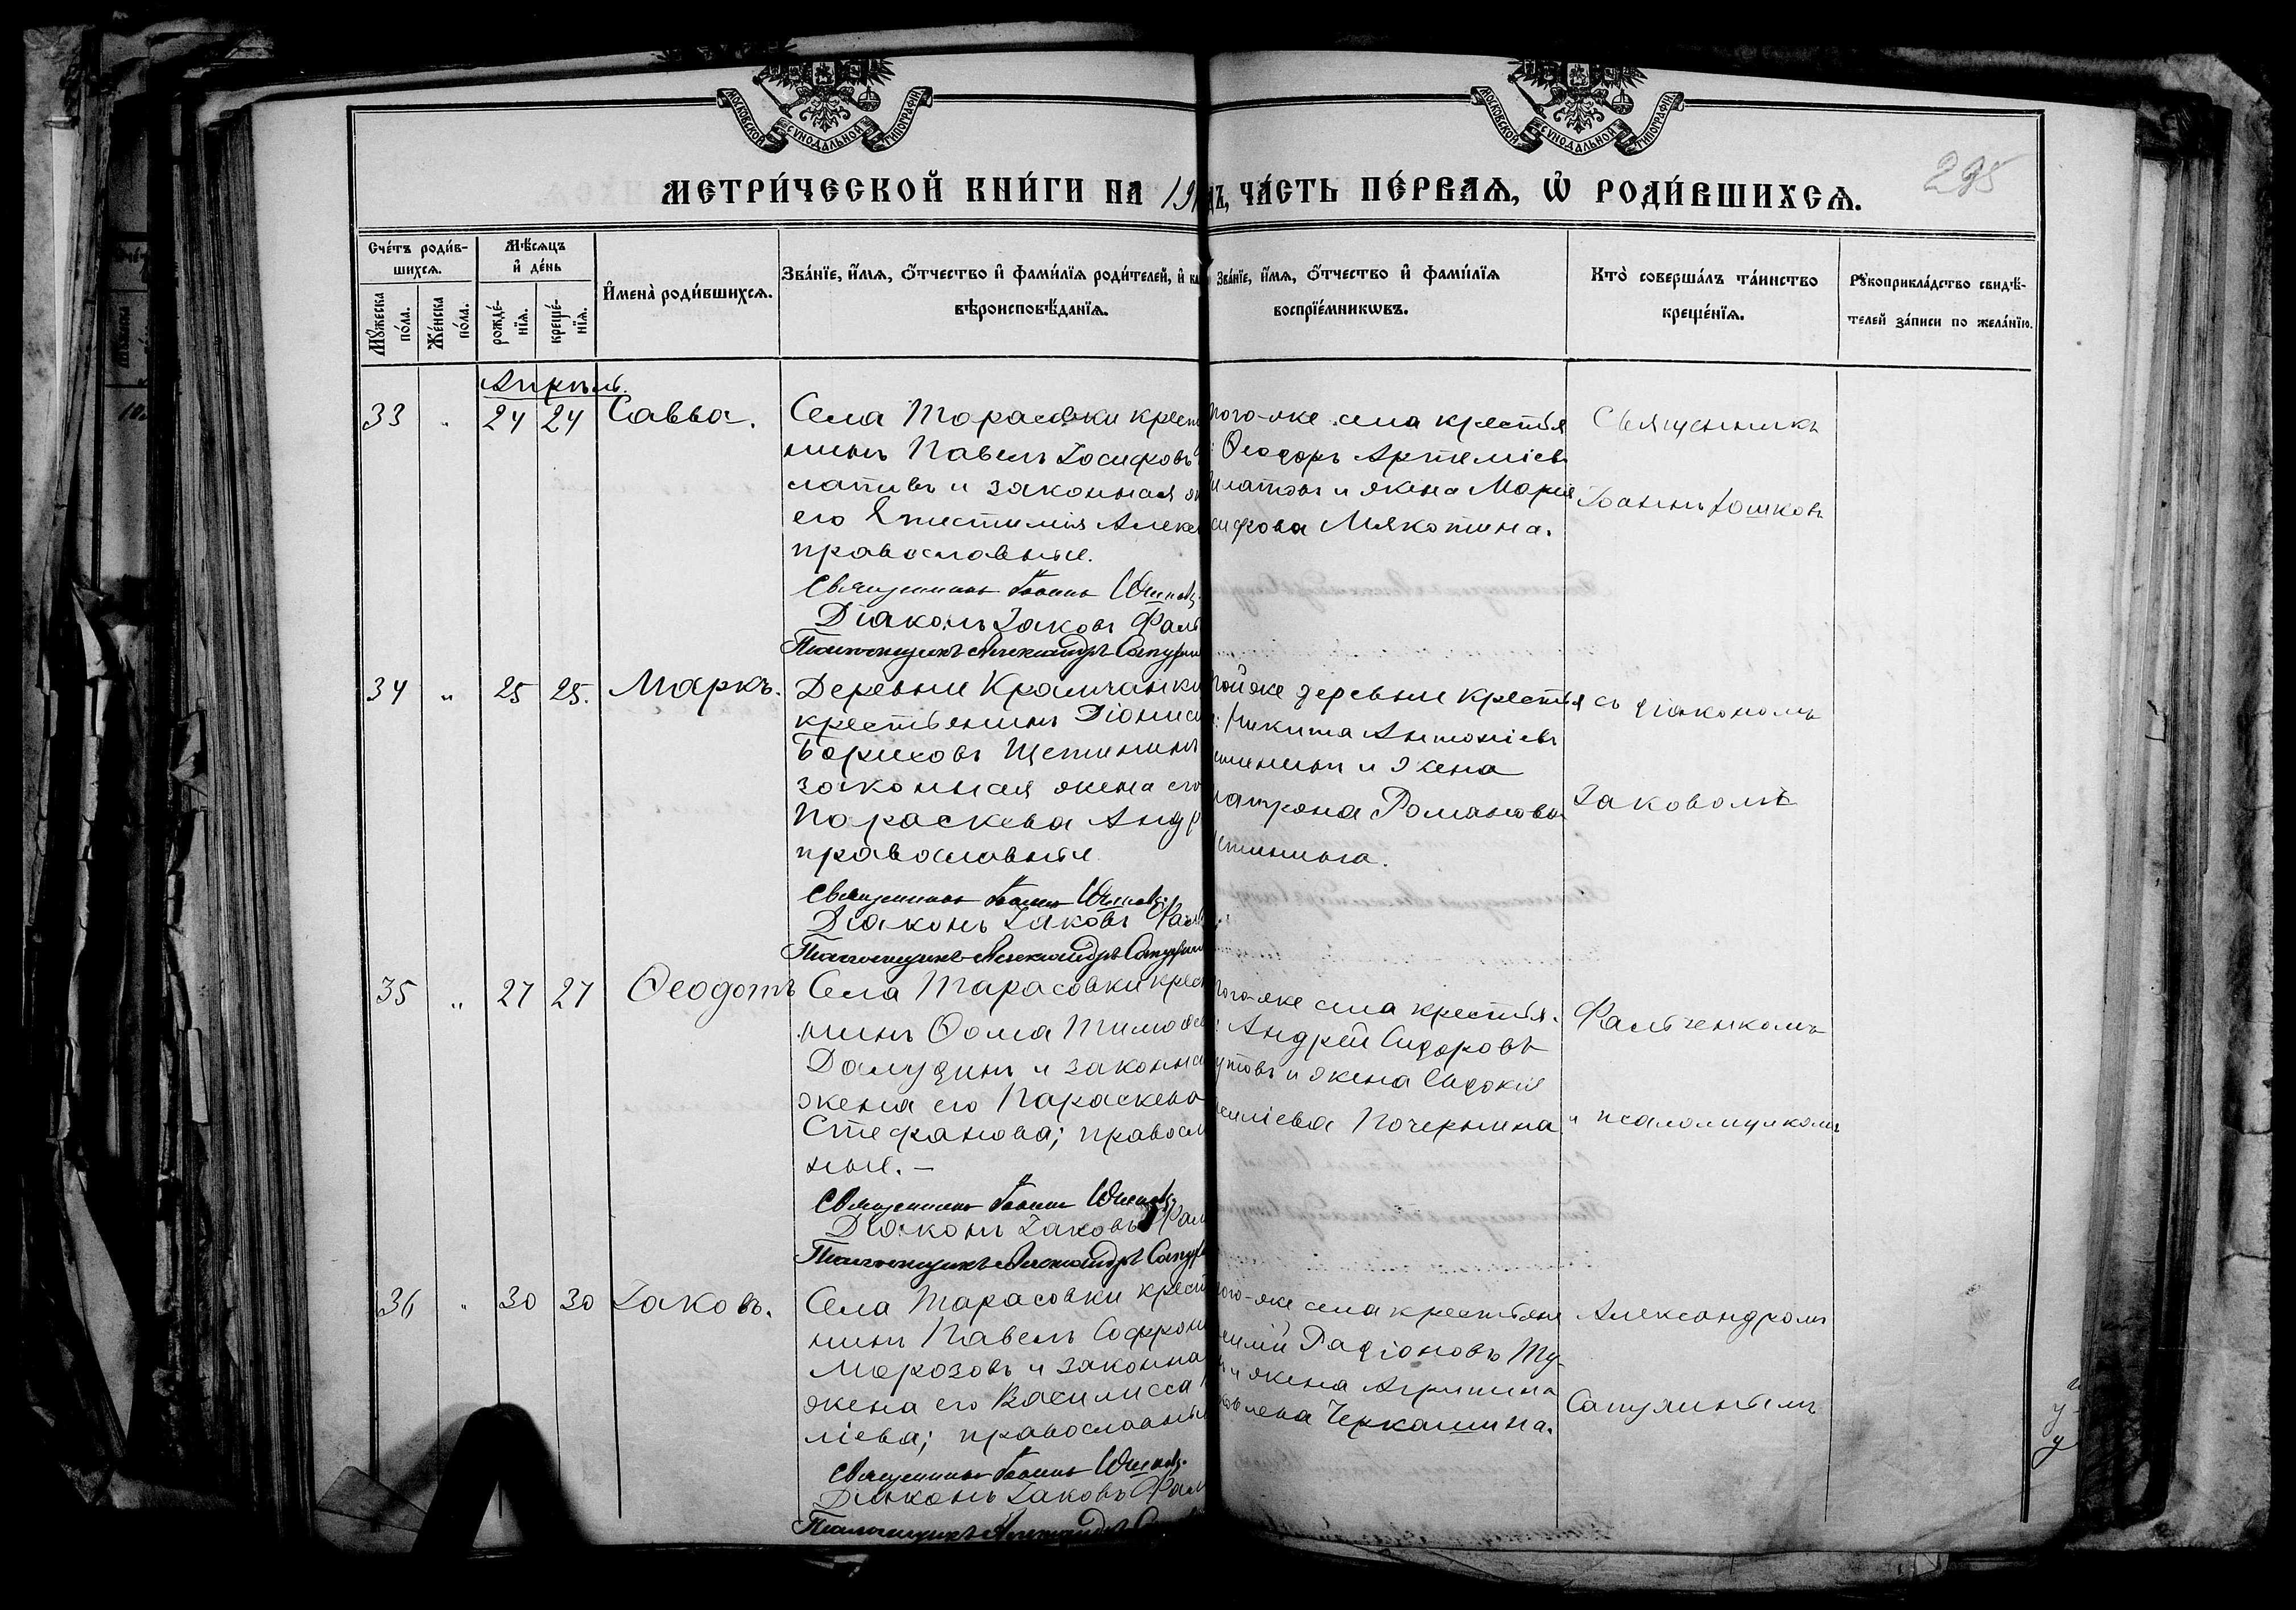 МОСКОВСКОЙ СУНОДАЛЬНОЙ ТИПОГРАФІИ
МОСКОВСКОЙ СУНОДАЛЬНОЙ ТИПОГРАФІИ
МЕТРИ́ЧЕСКОЙ КНИ́ГИ НА 19
ЧА́СТЬ ПЕ́РВАѦ, Ѡ҆ РОДИ́ВШИХСѦ.
295
Сче́тъ роди́в-
шихсѧ.
Мꙋ́жеска по́ла.
Же́нска по́ла.
Мѣ́сѧцъ
и҆ де́нь
рожде́-
нїѧ.
креще́-
нїѧ.
И҆мена̀ роди́вшихсѧ.
Зва́нїе, и҆́мѧ, ѻ҆́тчество и҆ фами́лїѧ роди́телей, и҆
вѣроисповѣ́данїѧ.
Зва́нїе, и҆́мѧ, ѻ҆́тчество и҆ фами́лїѧ
воспрїе́мникѡвъ.
Кто̀ соверша́лъ та́инство
креще́нїѧ.
Рꙋкоприкла́дство свидѣ́-
телей за́писи по жела́нїю.
Апрѣль.
33 " 24 24 Савва.
Села Тарасовки крест
нинъ Павелъ Іосифовъ
латовъ и законная
его Епистимія Алек
православные.
Священникъ Іоаннъ Юшковъ
Діаконъ Іаковъ Фаль
Псаломщикъ Александръ Сапул
того-же села крестья
Ѳеодоръ Артеміевъ
илатовъ и жена Марія
сифова Мякотина.
Священникъ
Іоаннъ Юшковъ
34 " 25 25. Маркъ.
Деревни Крамчанки
крестьянинъ Діонис
Борисовъ Щетининъ
законная жена его
Параскева Андр
православные
Священникъ Іоаннъ Юшковъ
Діаконъ Іаковъ Фаль
Псаломщикъ Александръ Сапул
той же деревни крестья
Никита Антоніевъ
тининъ и жена
атрона Романова
тинина.
съ діакономъ
Іаковомъ
35 " 27 27 Ѳеодотъ
Села Тарасовки крест
нинъ Ѳома Тимоѳе
и законна
жена его Параскева
Стефанова; правосл
ные. —
Священникъ Іоаннъ Юшковъ
Діаконъ Іаковъ Фаль
Псаломщикъ Александръ Сапул
того-же села крестья.
Андрей Сидоровъ
утовъ и жена Евдокія
еміева Почернина
Фальченкомъ
и псаломщикомъ
36 " 30 30 Іаковъ.
Села Тарасовки крест
нинъ Павелъ Софрон
Морозовъ и законна
жена его Василисса
ліева; православные
Священникъ Іоаннъ Юшковъ
Діаконъ Іаковъ Фаль
Псаломщикъ Александръ
ого-же села крестьян
Радіоновъ Ту-
и жена Агрипина
овлева Черкашина.
Александромъ
Сапулинымъ